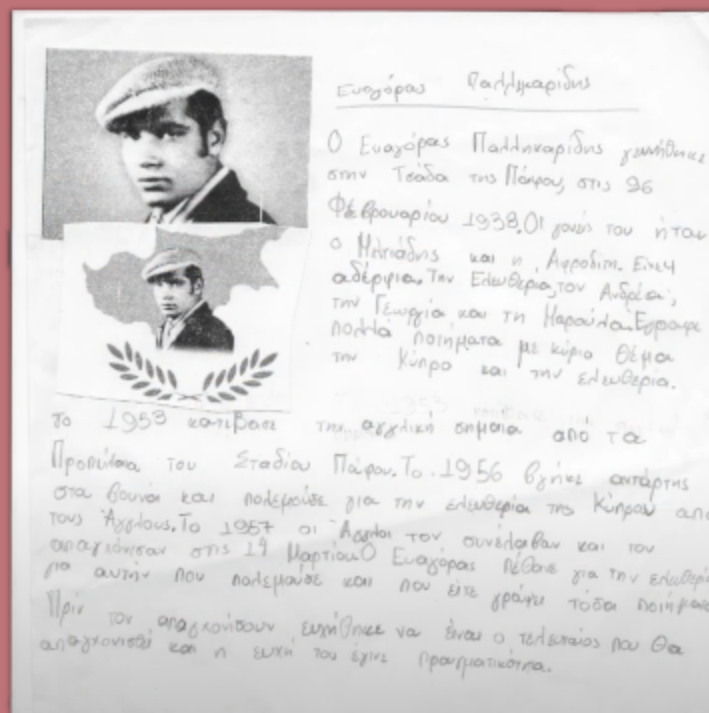 Ευαγόρας Παλληκαρίδης
Ο Ευαγόρας Παλληκαρίδης γεννήθηκε
στην Τσάδα της Πάφου, στις 26
Φεβρουαρίου 1938. Οι γονείς του ήταν
ο Μιλτιάδης και η Αφροδίτη. Είχε 4
αδέρφια. Την Ελευθερία, τον Ανδρέα,
την Γεωργία και τη Μαρούλα. Έγραψε
πολλά ποιήματα με κύριο θέμα
την Κύπρο και την ελευθερία.
Το 1953 κατέβασε την αγγλική σημαία από τα
Προπύλαια του Σταδίου Πάφου. Το 1956 βγήκε αντάρτης
στα βουνά και πολεμούσε για την ελευθερία της Κύπρου από
τους Άγγλους. Το 1957 οι Άγγλοι τον συνέλαβαν και τον
απαγχόνισαν στις 14 Μαρτίου. Ο Ευαγόρας πέθανε για την ελευθερία
για αυτήν που πολεμούσε και που είτε γράψει τόσα ποιήματα
Πριν τον απαγχονίσουν ευχήθηκε να είναι ο τελευταίος που θα
απαγχονισθεί και η ευχή του έγινε πραγματικότητα.